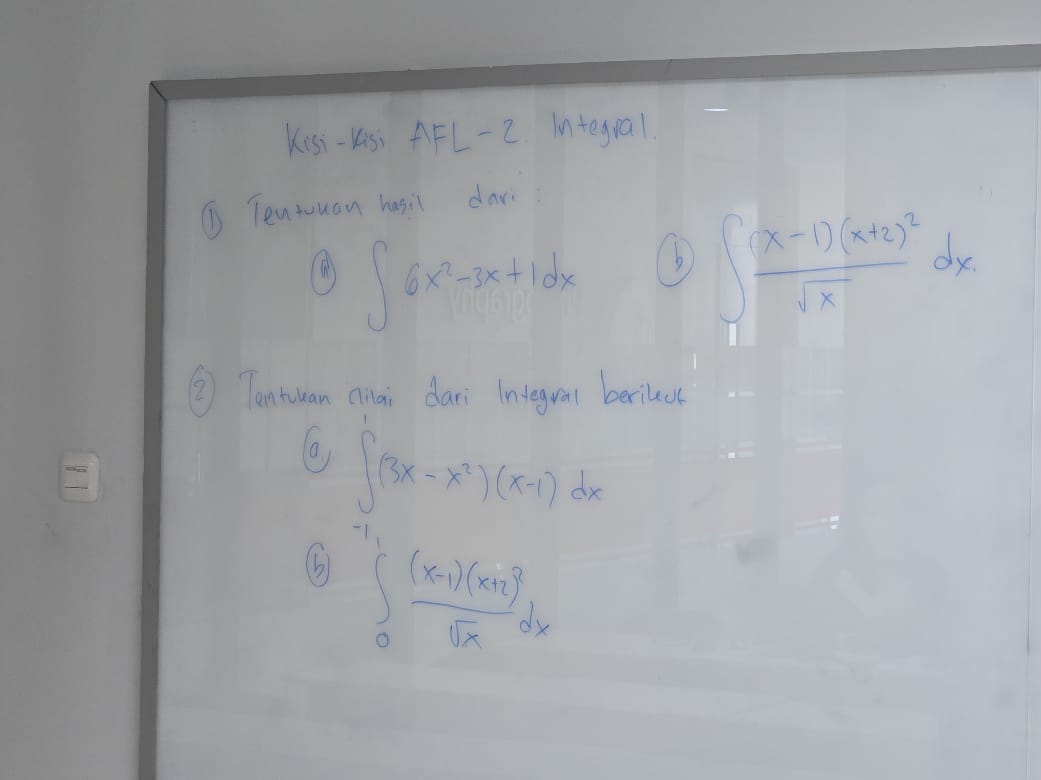 Kisi-Kisi AFL-2. Integral.
① Tentukan hasil dari :
ⓐ ∫ 6x²-3x+1 dx ⓑ ∫ (x-1)(x+2)² / √x dx.
② Tentukan nilai dari Integral berikut
ⓐ ∫₋₁¹ (3x - x²)(x-1) dx
ⓑ ∫₀¹ (x-1)(x+2)² / √x dx